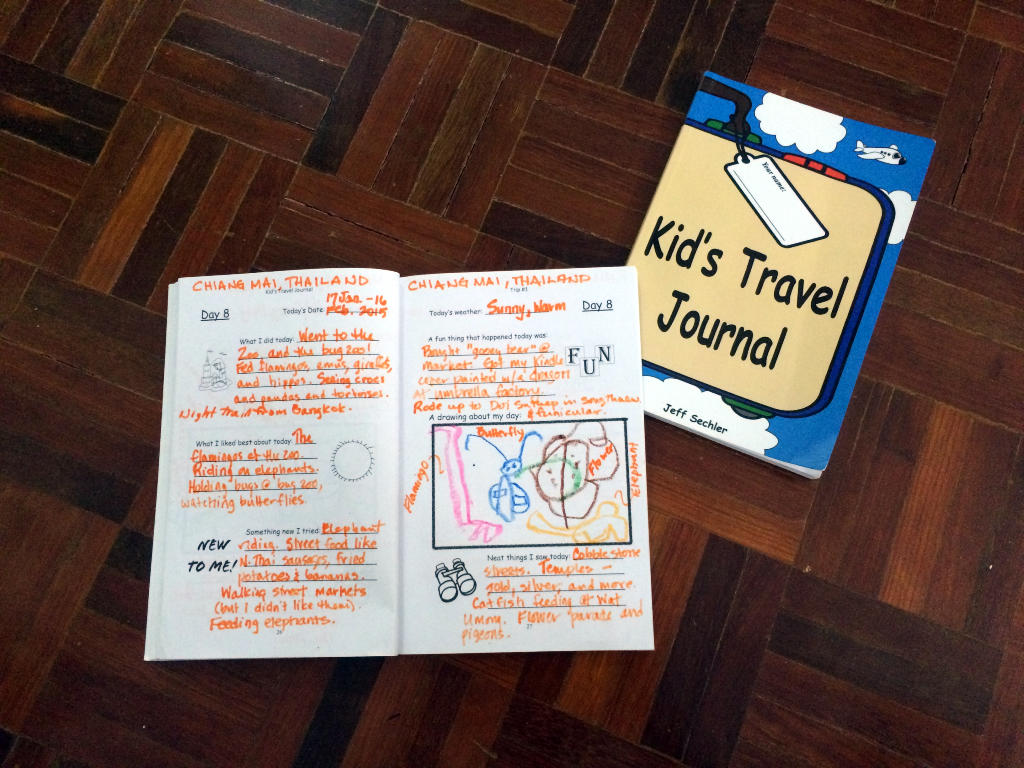 CHIANG MAI, THAILAND
Kid's Travel Journal
17 Jan. - 16
Day 8
Today's Date: Feb. 2015
What I did today: Went to the
Zoo, and the bug zoo!
Fed flamingos, emus, giraffes,
and hippos. Seeing crocs
and pandas and tortoises.
Night Train from Bangkok.
What I liked best about today: The
flamingos at the zoo.
Riding on elephants.
Holding bugs @ bug zoo,
watching butterflies.
Something new I tried: Elephant
NEW
TO ME!
riding. Street food like
N. Thai sausage, fried
potatoes & bananas.
Walking street markets
(but I didn't like them).
Feeding elephants.
26
CHIANG MAI, THAILAND
Trip #1
Today's weather: Sunny, Warm
Day 8
A fun thing that happened today was:
Bought "gooey bear" @
market. Got my Kindle
cover painted w/a dragon
at umbrella factory.
Rode up to Doi Suthep in songthaew
& funicular.
FUN
A drawing about my day:
Butterfly
Flamingo
Flower
Elephant
Neat things I saw today: Cobblestone
streets. Temples -
gold, silver, and more.
Catfish feeding at Wat
Umong. Flower parade and
pigeons.
27
Your name:
Kid's Travel
Journal
Jeff Sechler